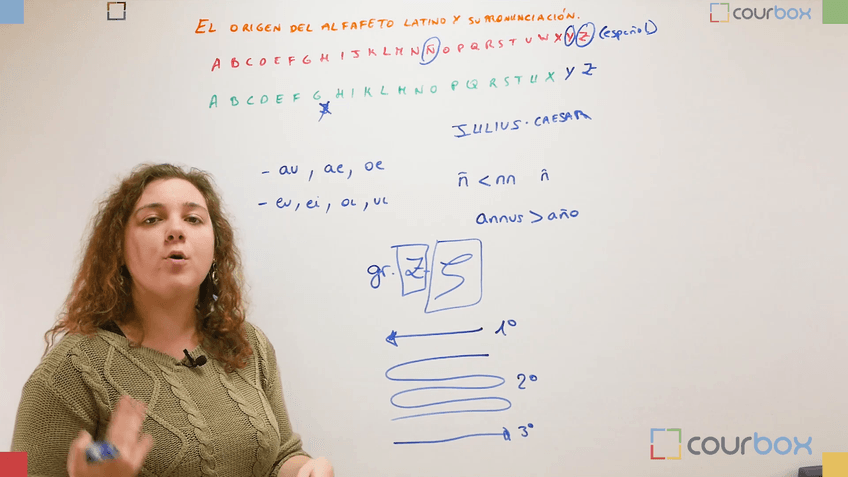 courbox
EL ORIGEN DEL ALFAFETO LATINO Y SU PRONUNCIACIÓN.
A B C D E F G H I J K L M N Ñ O P Q R S T U W X Y Z (español)
A B C D E F G H I K L M N O P Q R S T U X Y Z
JULIUS · CAESAR
- au, ae, oe
n̄ < nn ñ
- eu, ei, oi, ui
annus > año
gr. Z - ζ
1º
2º
3º
courbox